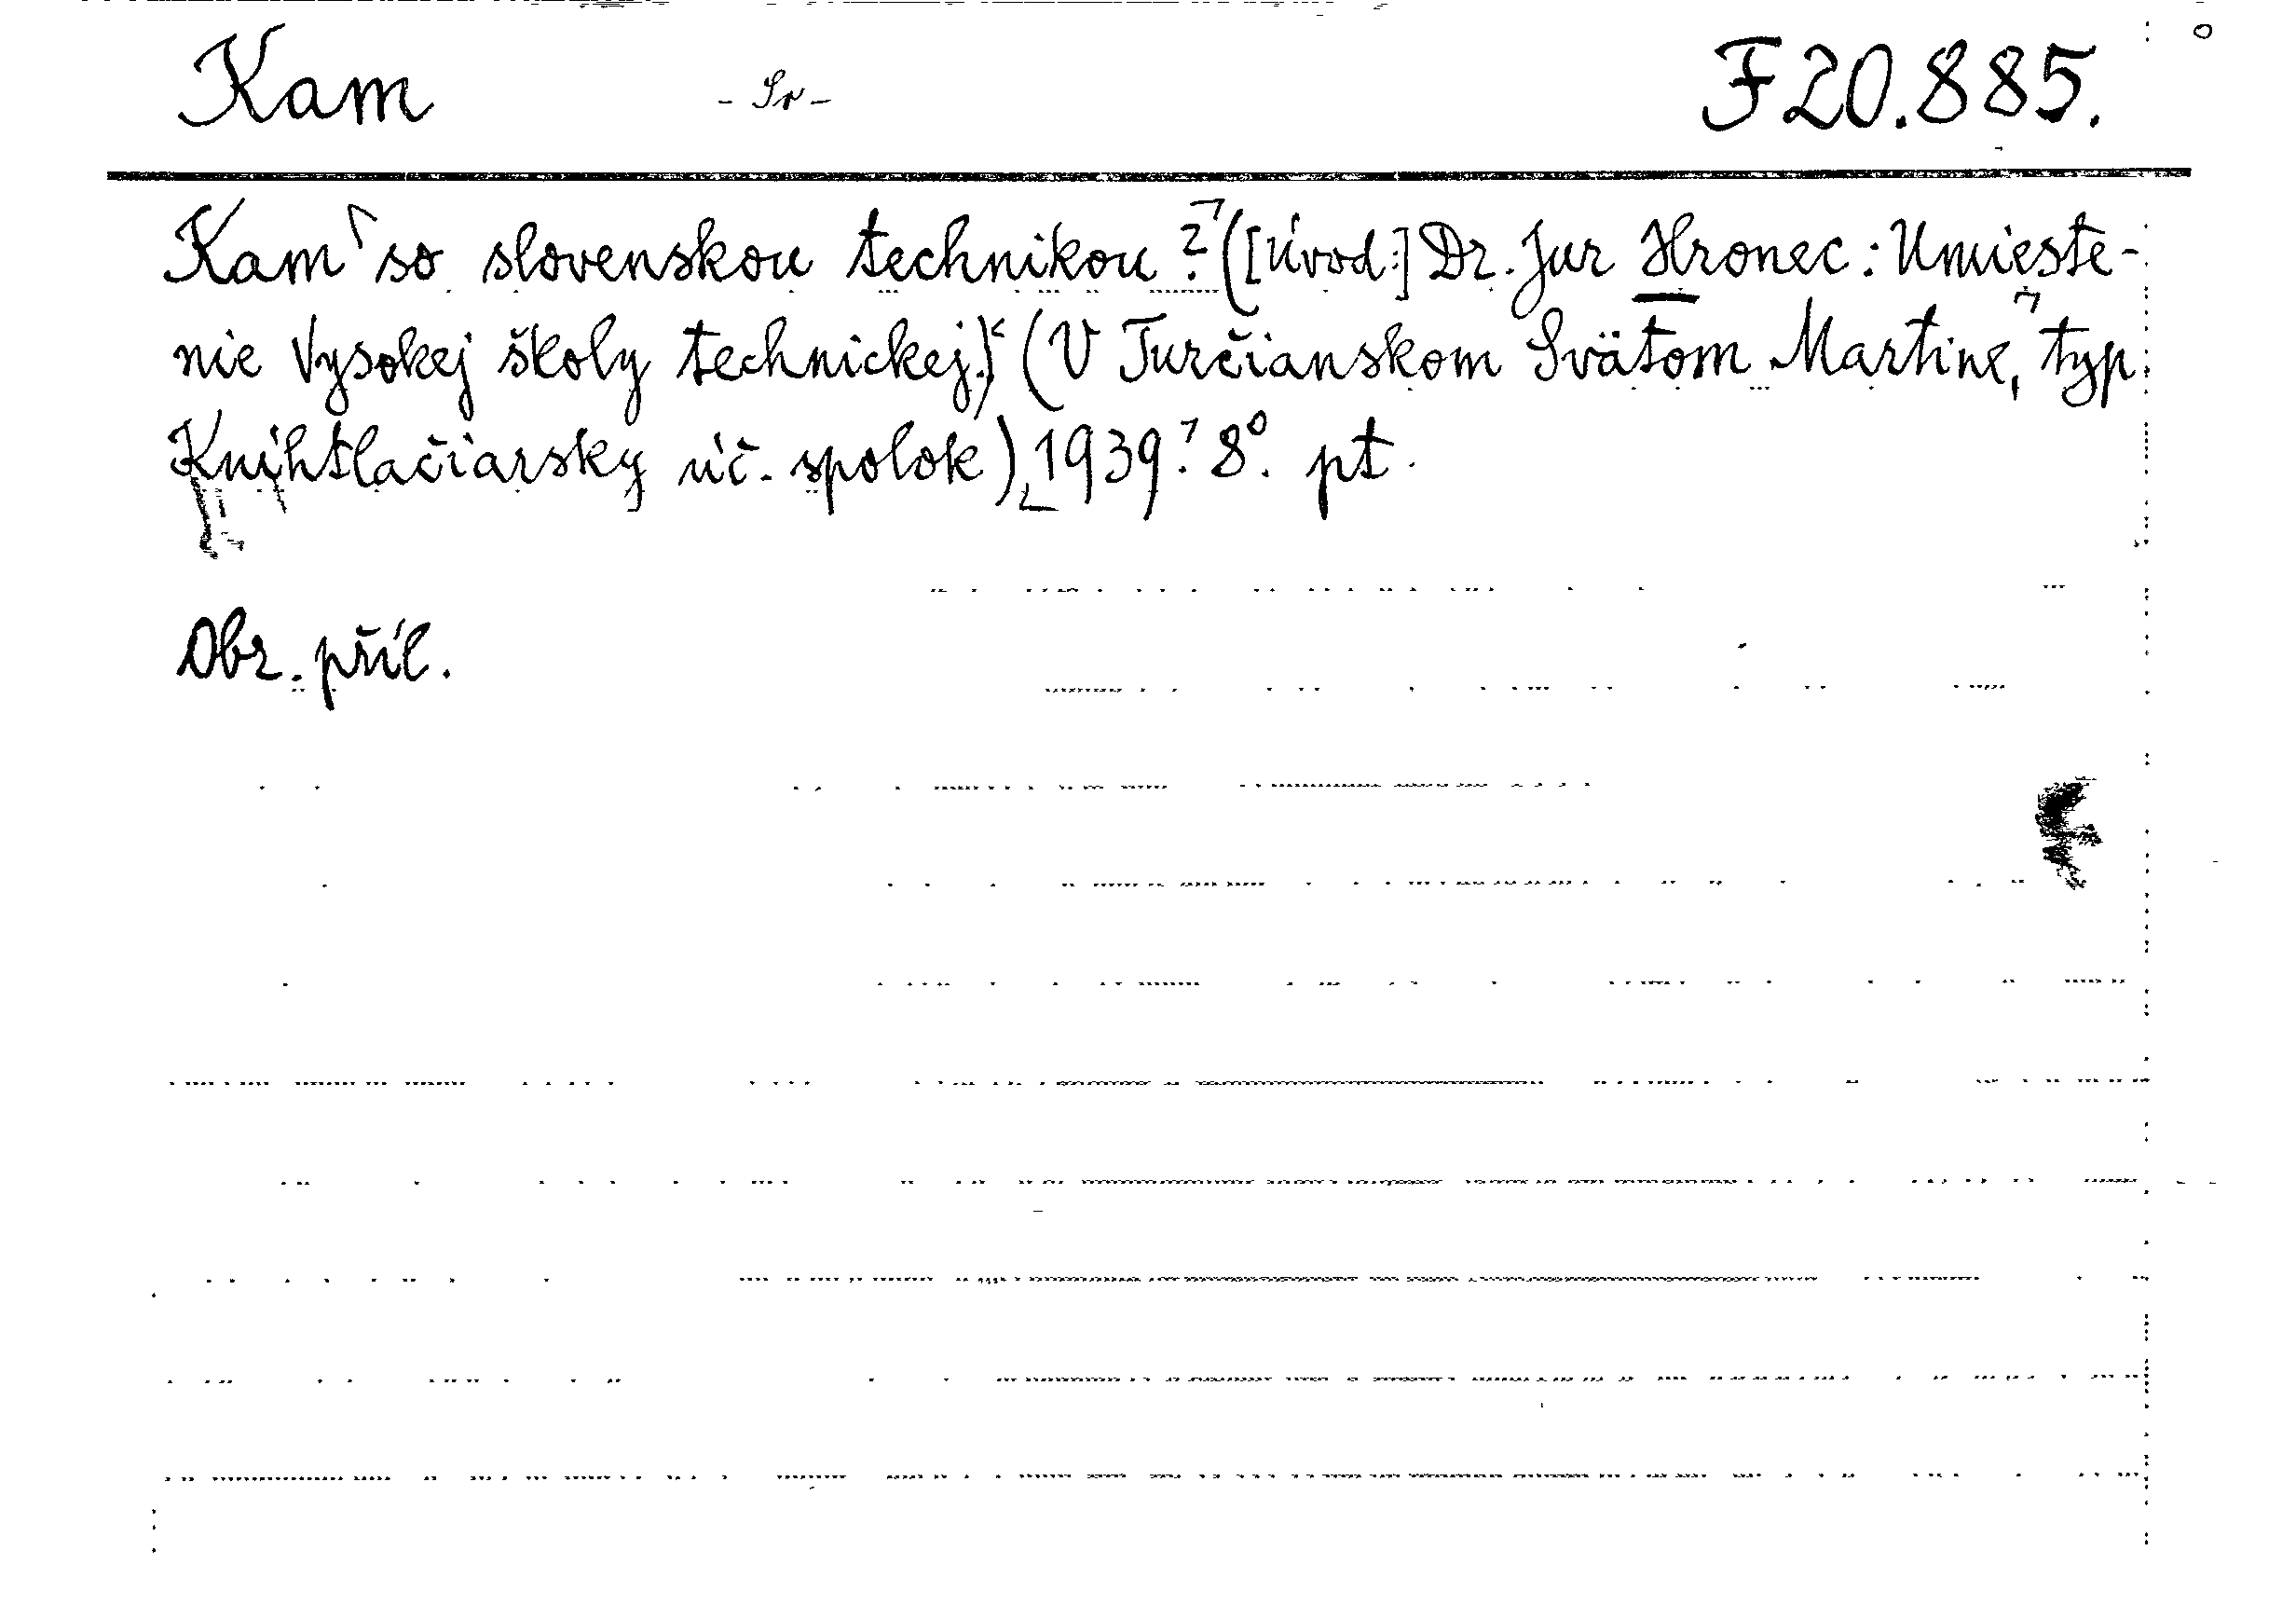 Kam - Sr - F 20.885.
Kam so slovenskou technikou? ([Úvod:] Dr. Jur Hronec: Umieste-
nie Vysokej školy technickej.) (V Turčianskom Svätom Martine, typ.
Knihtlačiarsky úč. spolok) 1939. 8°. pt.
Obr. příl.